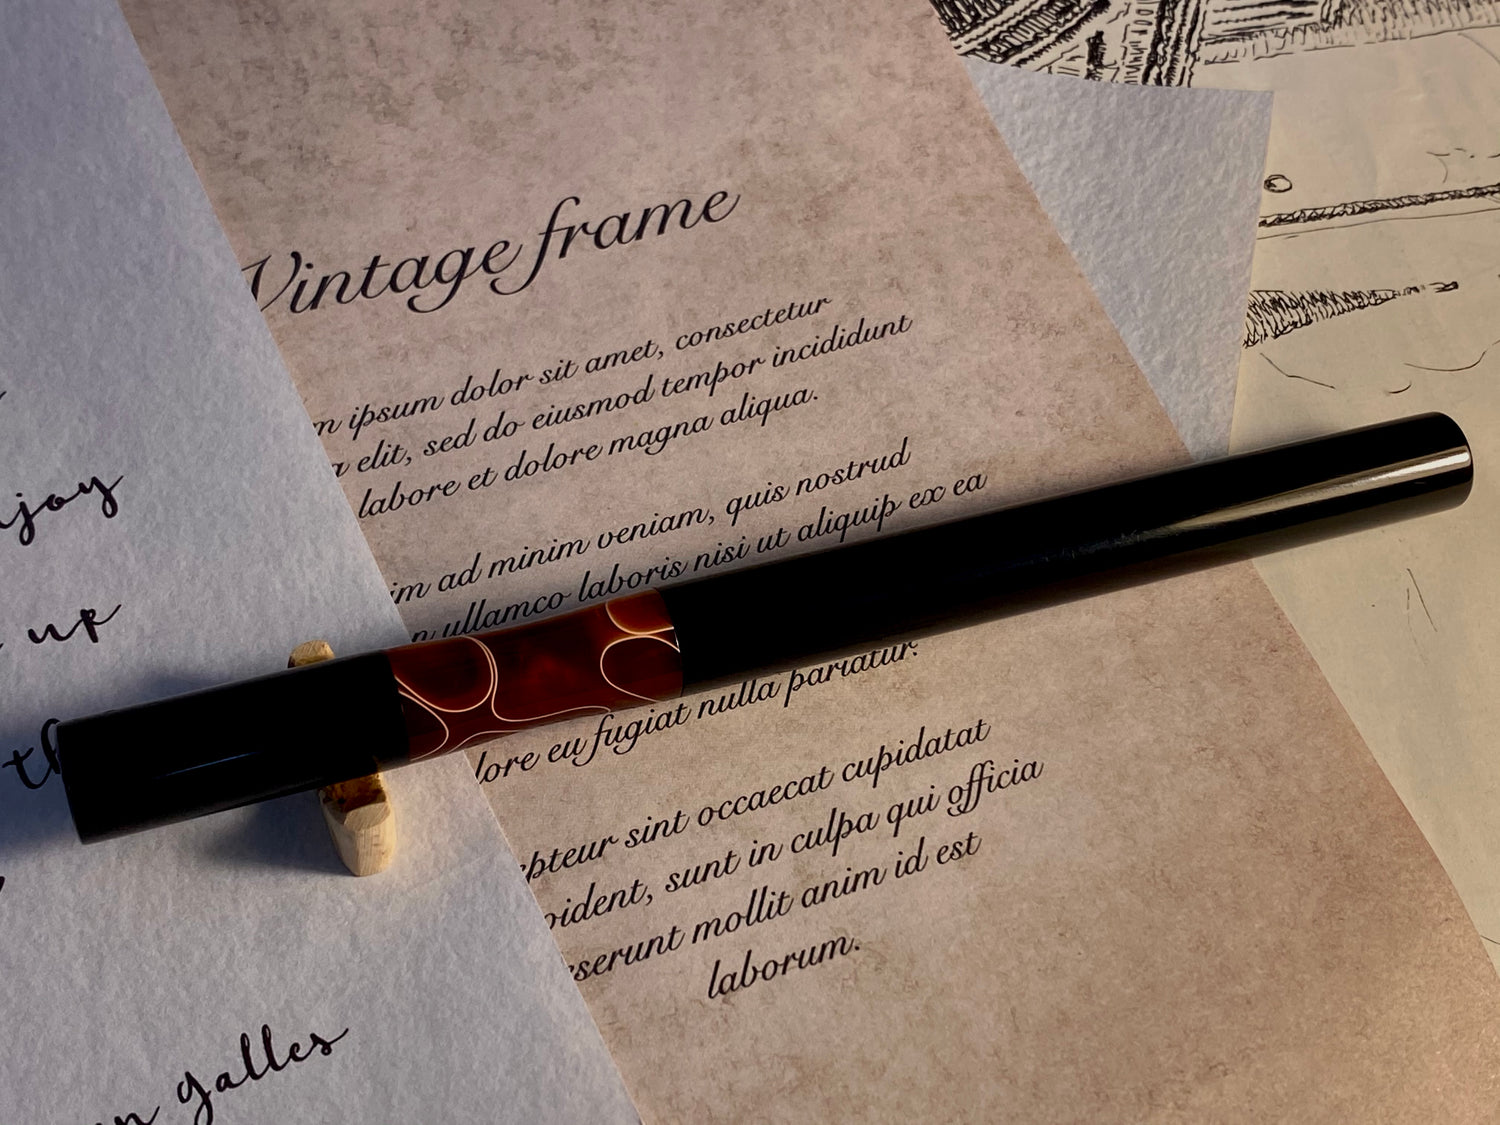 Vintage frame
ipsum dolor sit amet, consectetur
elit, sed do eiusmod tempor incididunt
labore et dolore magna aliqua.
ad minim veniam, quis nostrud
ullamco laboris nisi ut aliquip ex ea
eu fugiat nulla pariatur.
sint occaecat cupidatat
sunt in culpa qui officia
mollit anim id est
laborum.
up
galles